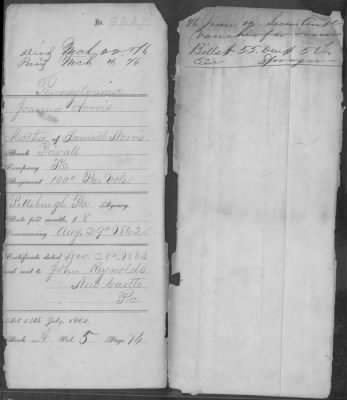 No. 9237
Died Mch 22 '76
Paid Mch 4, 76
Pennsylvania
Joanna Norris
Mother of Samuel Norris
Rank Private
Company K
Regiment 100" Pa. Vols
Pittsburgh Pa Agency
Rate per month, $8
Commencing Aug. 29" 1862
Certificate dated Nov. 28" 1863
and sent to John Reynolds
New Castle
Pa.
Act 14th July, 1862.
Book A Vol. 5 Page 74
76 June 12
Vouchers for